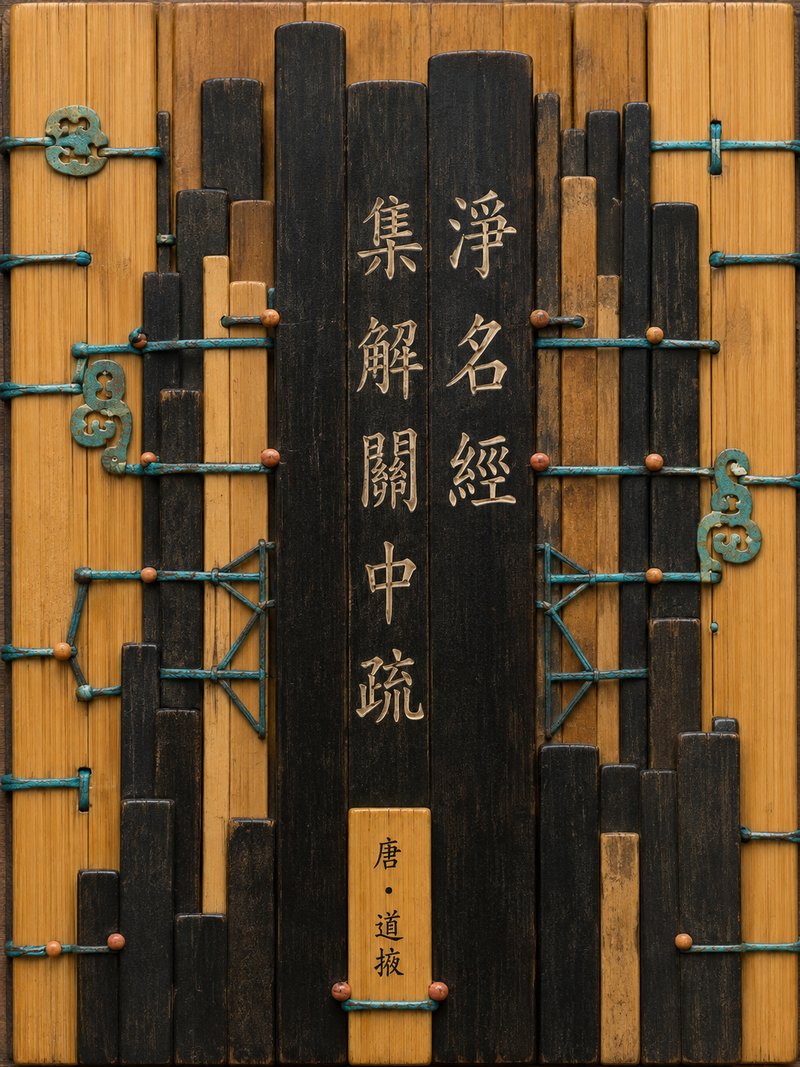 淨名經
集解關中疏
唐・道掖